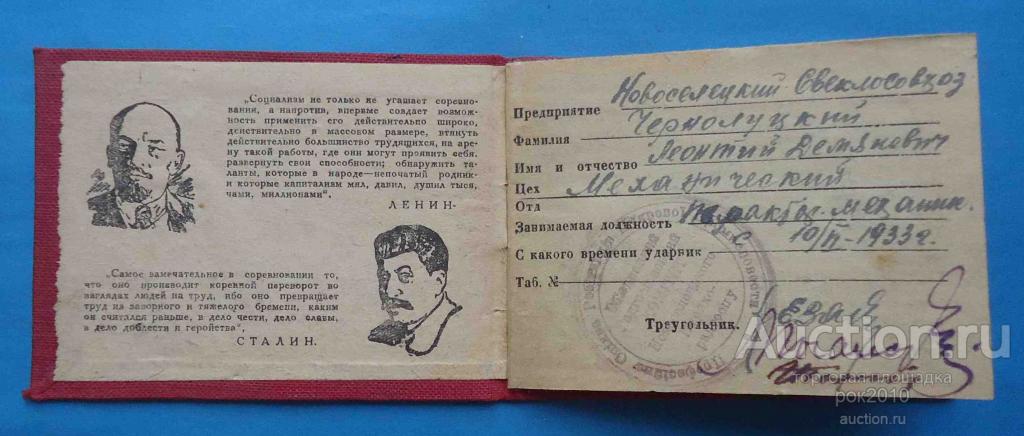 „Социализм не только не угашает соревно-
вания, а напротив, впервые создает возмож-
ность применить его действительно широко,
действительно в массовом размере, втянуть
действительно большинство трудящихся, на аре-
ну такой работы, где они могут проявить себя.
развернуть свои способности; обнаружить та-
ланты, которые в народе—непочатый родник
и которые капитализм мял, давил, душил тыся,
чами, миллионами".
ЛЕНИН-
„Самое замечательное в соревновании то,
что оно производит коренной переворот во
взглядах людей на труд, ибо оно превращает
труд из зазорного и тяжелого бремени, каким
он считался раньше, в дело чести, дело славы,
в дело доблести и геройства",
СТАЛИН.
Предприятие Новоселецкий Свеклосовхоз
Фамилия Чернолуцкий
Имя и отчество Леонтий Демянович
Цех Механический
Отд
Занимаемая должность механик
С какого времени ударник с 10/II-1933г.
Таб. №
Треугольник.
Auction.ru
торговая площадка
рок2010
auction.ru